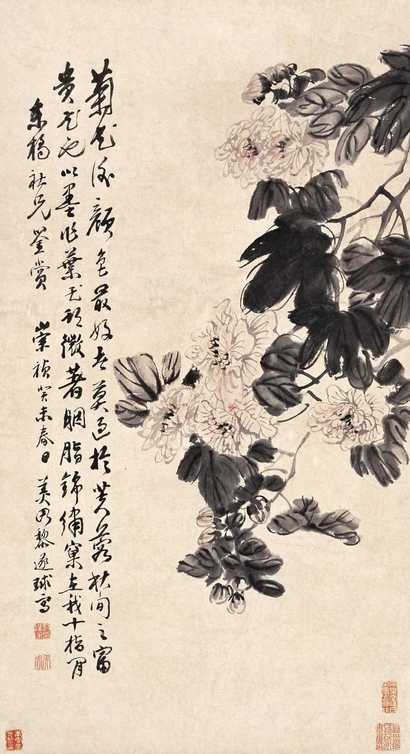 菊花後顏色最好者莫過於芙蓉秋間之富
貴花也以墨作葉花頭微著胭脂錦繡窠在我十指間
東橋社兄鑒賞
崇禎癸未春日美周黎遂球寫